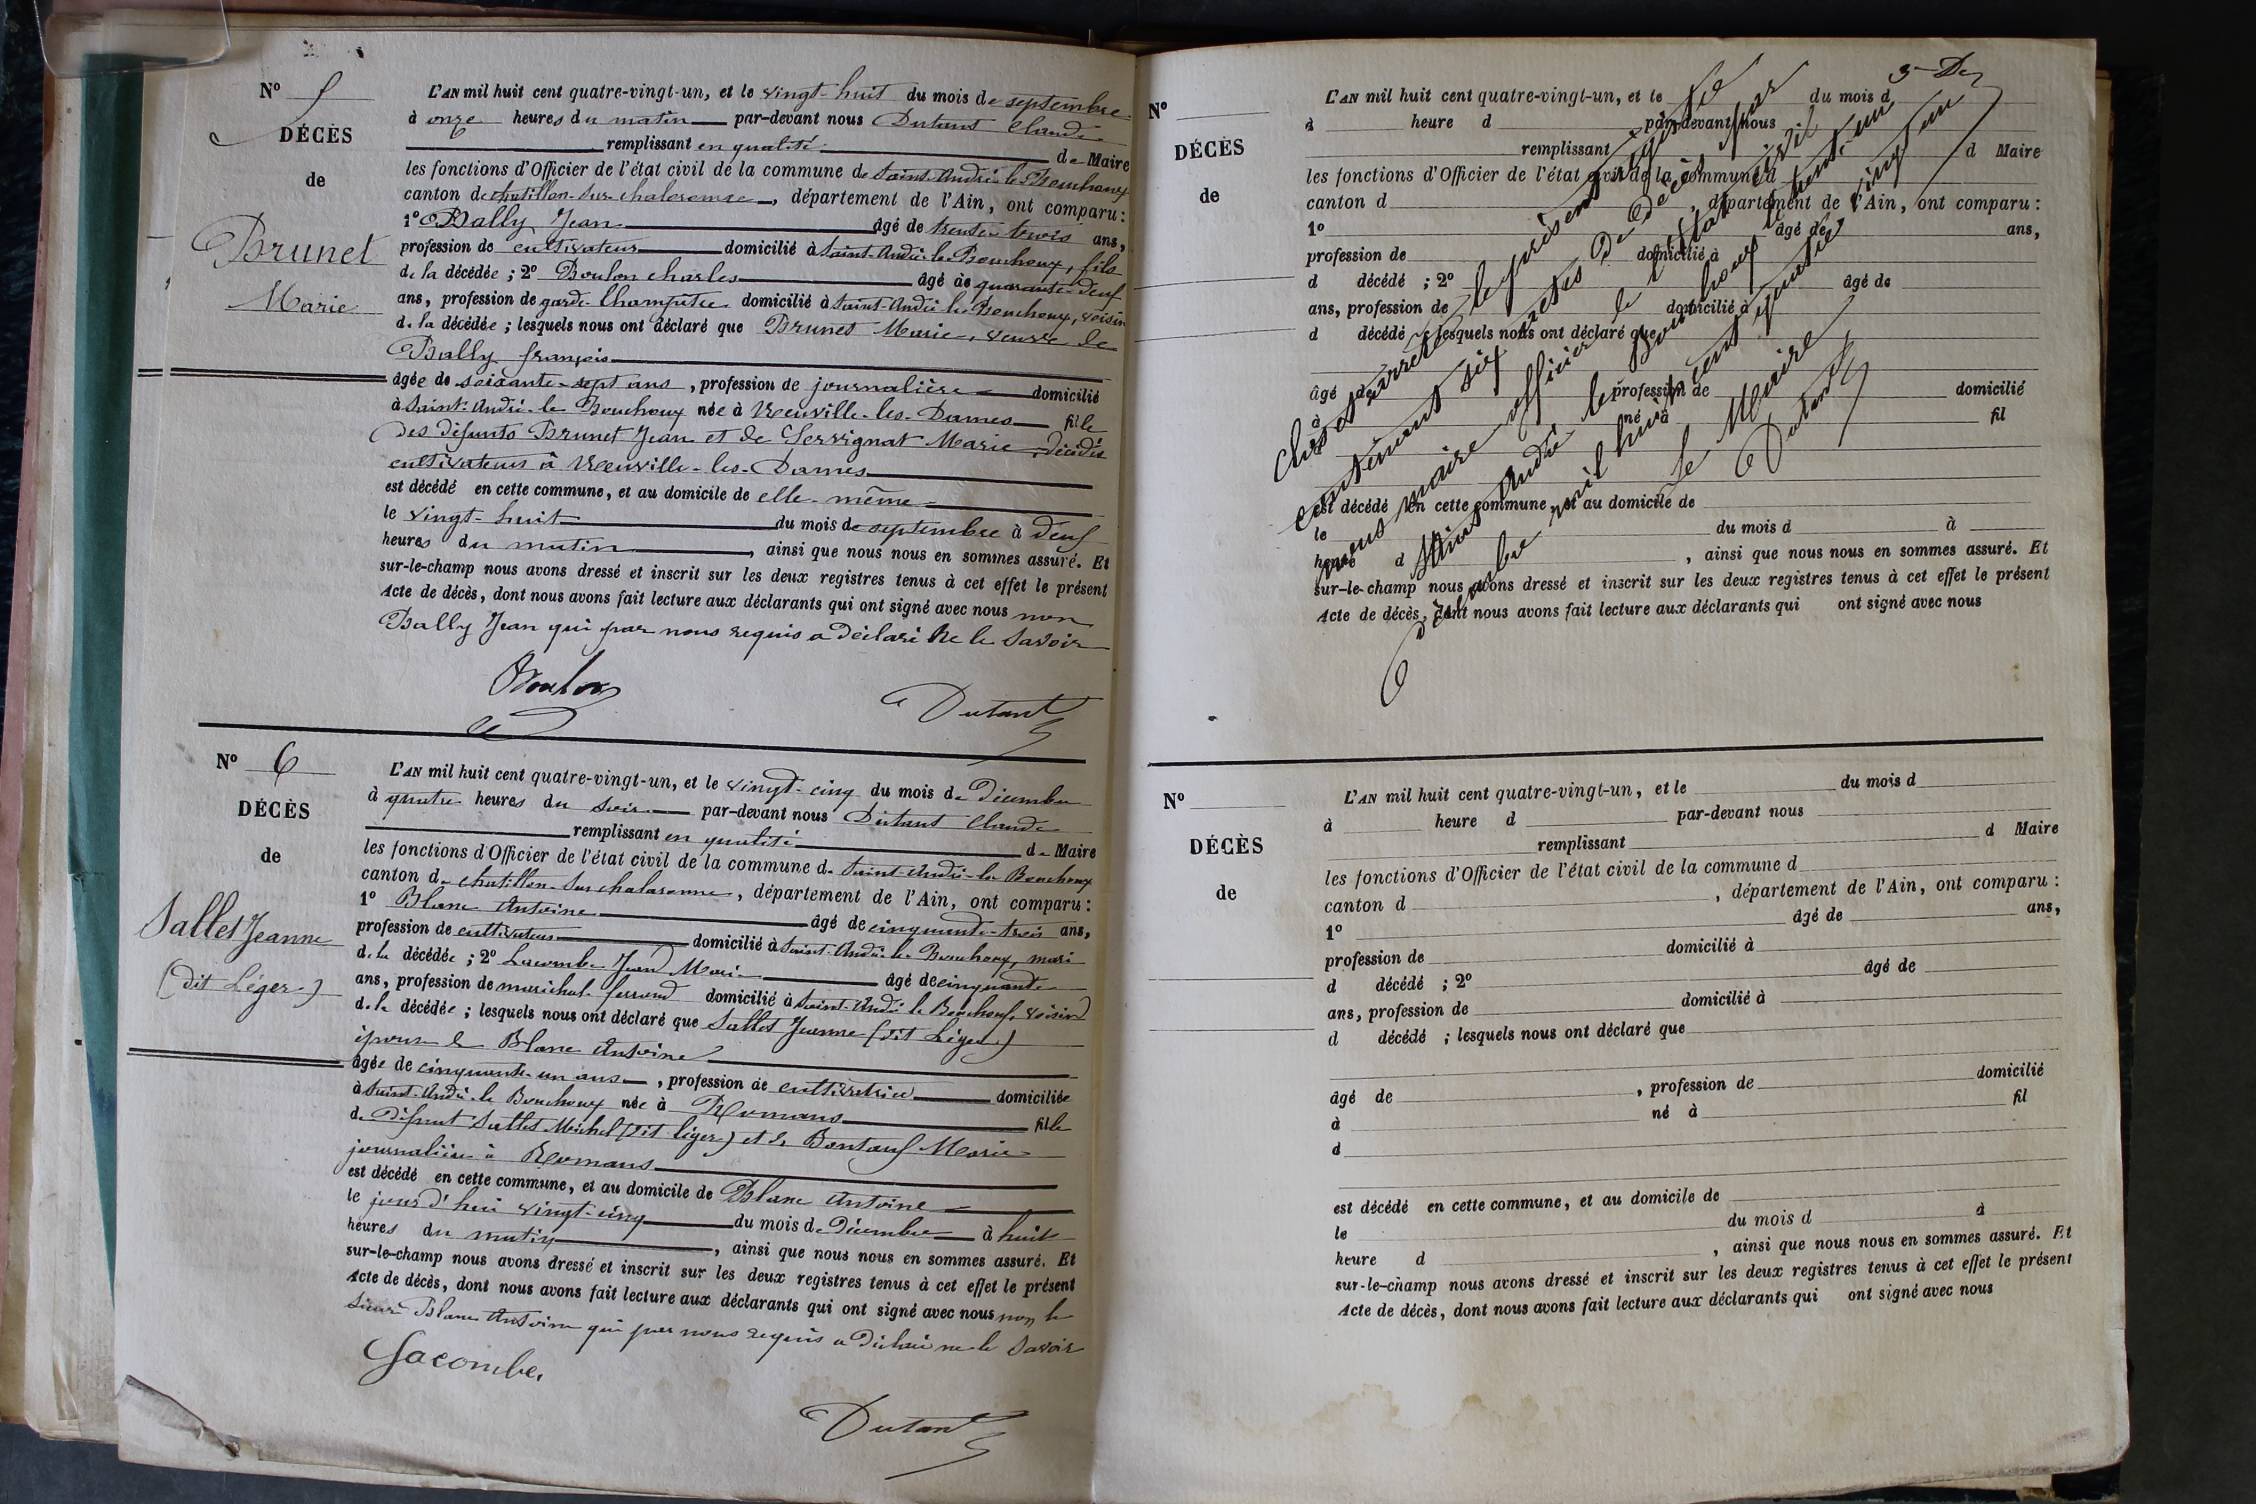 N° 5
DÉCÈS
de
Brunet
Marie
L'AN mil huit cent quatre-vingt-un, et le vingt-huit du mois de septembre
à onze heures du matin par-devant nous Dutant Claude
remplissant en qualité de Maire
les fonctions d'Officier de l'état civil de la commune de Saint-André-le-Bouchoux
canton de chatillon-sur-chalaronne, département de l'Ain, ont comparu:
1° Bally Jean âgé de trente-trois ans,
profession de cultivateur domicilié à Saint-André-le-Bouchoux, fils
de la décédée ; 2° Boulon charles âgé de quarante-deux
ans, profession de garde-Champêtre domicilié à Saint-André-le-Bouchoux, voisin
de la décédée ; lesquels nous ont déclaré que Brunet Marie, veuve de
Bally françois
âgée de soixante-sept ans, profession de journalière domicilié
à Saint-André-le-Bouchoux née à Neuville-les-Dames fille
des défunts Brunet Jean et de Servignat Marie, décédés
cultivateurs à Neuville-les-Dames
est décédé en cette commune, et au domicile de elle-même
le vingt-huit du mois de septembre à deux
heures du matin, ainsi que nous nous en sommes assuré. Et
sur-le-champ nous avons dressé et inscrit sur les deux registres tenus à cet effet le présent
Acte de décès, dont nous avons fait lecture aux déclarants qui ont signé avec nous non
Bally Jean qui par nous requis a déclaré ne le savoir
Boulon
Dutant
N° 6
DÉCÈS
de
Sallet Jeanne
(dit Léger)
L'AN mil huit cent quatre-vingt-un, et le vingt-cinq du mois de Décembre
à quatre heures du soir par-devant nous Dutant Claude
remplissant en qualité de Maire
les fonctions d'Officier de l'état civil de la commune de Saint-André-le-Bouchoux
canton de chatillon-sur-chalaronne, département de l'Ain, ont comparu:
1° Blanc Antoine âgé de cinquante-trois ans,
profession de cultivateur domicilié à Saint-André-le-Bouchoux, mari
de la décédée ; 2° Lacombe Jean Marie âgé de cinquante
ans, profession de maréchal ferrand domicilié à Saint-André-le-Bouchoux, voisin
de la décédée ; lesquels nous ont déclaré que Sallet Jeanne (dit Léger)
épouse de Blanc Antoine
âgée de cinquante-un ans, profession de cultivatrice domiciliée
à Saint-André-le-Bouchoux née à Romans fille
de Défunt Sallet Michel (dit léger) et de Marie
journalière à Romans
est décédé en cette commune, et au domicile de Blanc Antoine
le jourd'hui vingt-cinq du mois de Décembre à huit
heures du matin, ainsi que nous nous en sommes assuré. Et
sur-le-champ nous avons dressé et inscrit sur les deux registres tenus à cet effet le présent
Acte de décès, dont nous avons fait lecture aux déclarants qui ont signé avec nous non le
Blanc Antoine qui par nous requis a déclaré ne le savoir
Lacombe.
Dutant
N°
DÉCÈS
de
L'AN mil huit cent quatre-vingt-un, et le du mois d
à heure d par-devant nous
remplissant d Maire
les fonctions d'Officier de l'état civil de la commune d
canton d , département de l'Ain, ont comparu:
1° âgé de ans,
profession de domicilié à
d décédé ; 2° âgé de
ans, profession de domicilié à
d décédé ; lesquels nous ont déclaré que
âgé de profession de domicilié
à né à fil
est décédé en cette commune, et au domicile de
le du mois d à
heure d , ainsi que nous nous en sommes assuré. Et
sur-le-champ nous avons dressé et inscrit sur les deux registres tenus à cet effet le présent
Acte de décès, dont nous avons fait lecture aux déclarants qui ont signé avec nous
Clos et arrêté le présent registre
contenant six actes de décès par
nous maire officier de l'état civil
de Saint André le Bouchoux le trente-un
décembre mil huit cent quatre vingt un
Le Maire
Dutant
N°
DÉCÈS
de
L'AN mil huit cent quatre-vingt-un, et le du mois d
à heure d par-devant nous
remplissant d Maire
les fonctions d'Officier de l'état civil de la commune d
canton d , département de l'Ain, ont comparu :
1° âgé de ans,
profession de domicilié à
d décédé ; 2° âgé de
ans, profession de domicilié à
d décédé ; lesquels nous ont déclaré que
âgé de , profession de domicilié
à né à fil
d
est décédé en cette commune, et au domicile de
le du mois d à
heure d , ainsi que nous nous en sommes assuré. Et
sur-le-champ nous avons dressé et inscrit sur les deux registres tenus à cet effet le présent
Acte de décès, dont nous avons fait lecture aux déclarants qui ont signé avec nous